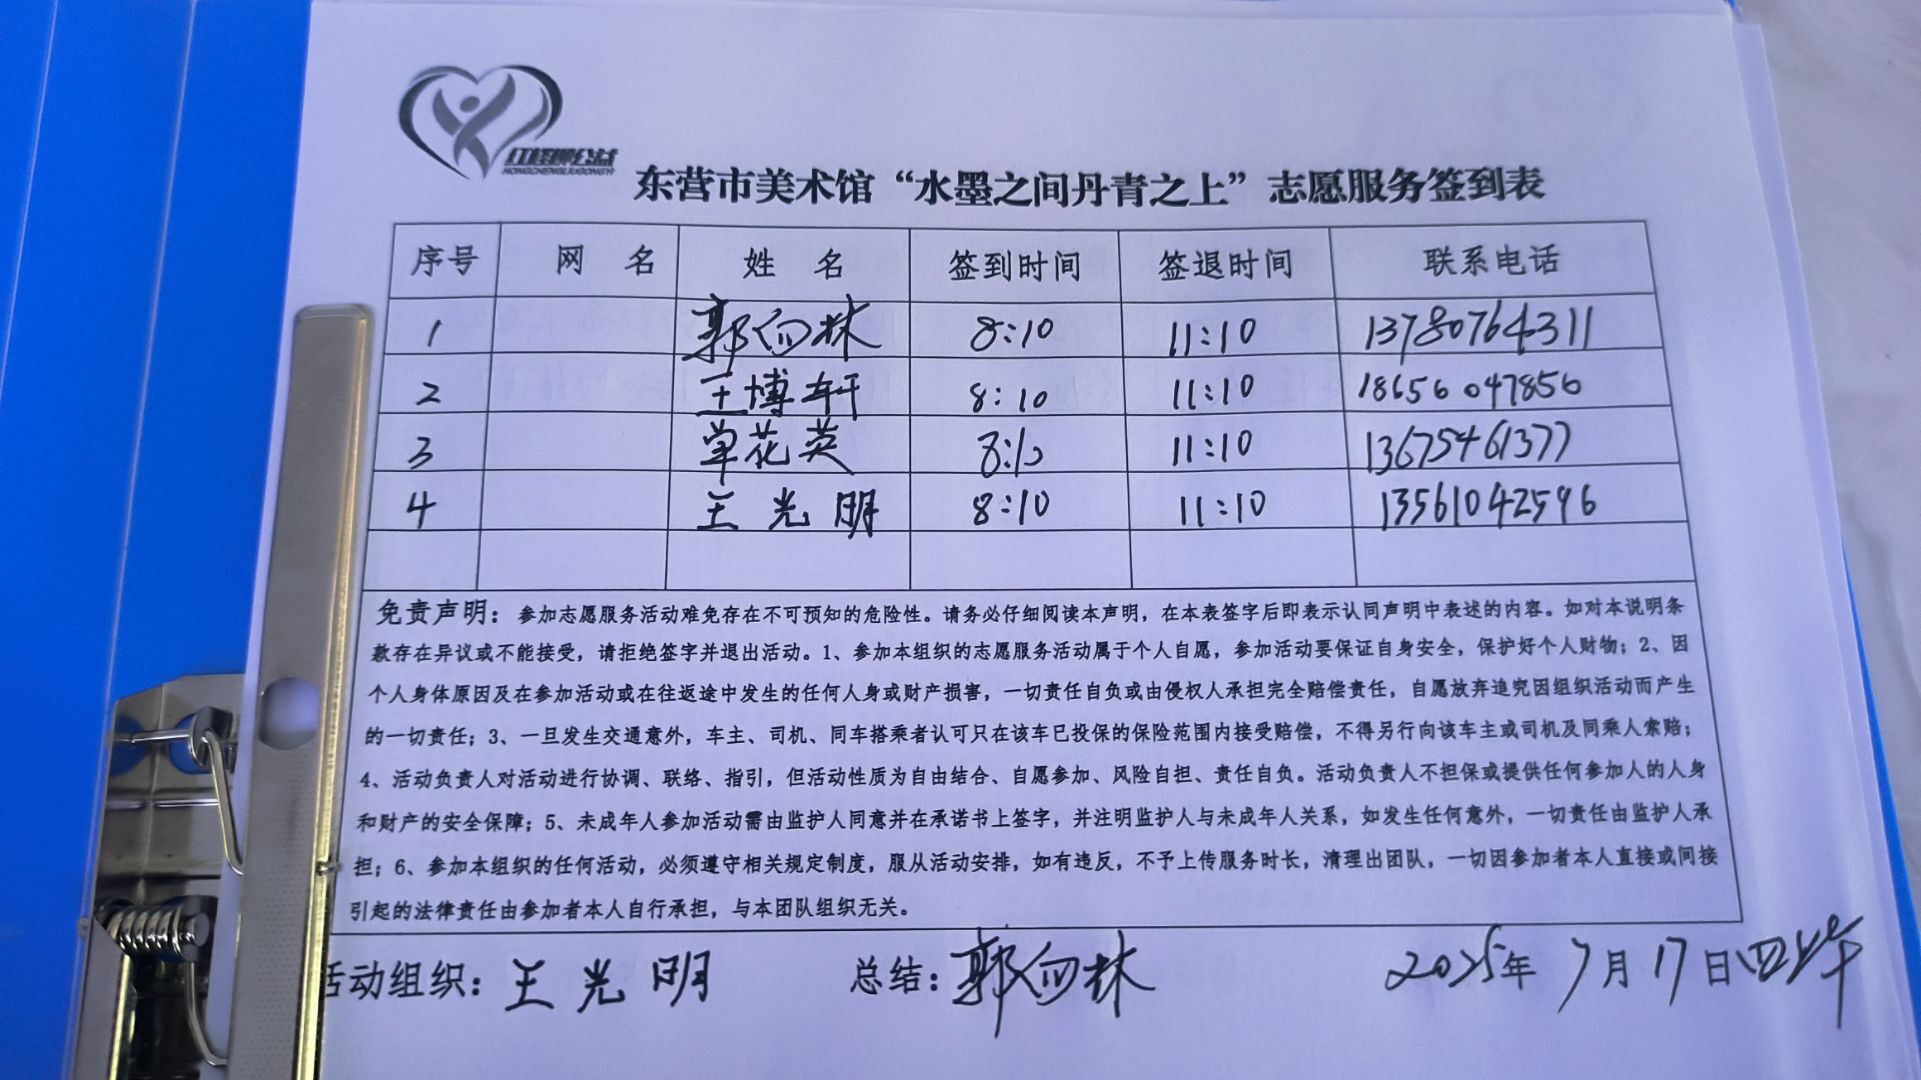 红柽柳公益
HONGCHENGLIUGONGYI
东营市美术馆“水墨之间丹青之上”志愿服务签到表
序号 网 名 姓 名 签到时间 签退时间 联系电话
1 郭向林 8:10 11:10 13780764311
2 王博轩 8:10 11:10 18656047856
3 单花英 8:10 11:10 13675461377
4 王光明 8:10 11:10 13561042596
免责声明：参加志愿服务活动难免存在不可预知的危险性。请务必仔细阅读本声明，在本表签字后即表示认同声明中表述的内容。如对本说明条
款存在异议或不能接受，请拒绝签字并退出活动。1、参加本组织的志愿服务活动属于个人自愿，参加活动要保证自身安全，保护好个人财物；2、因
个人身体原因及在参加活动或在往返途中发生的任何人身或财产损害，一切责任自负或由侵权人承担完全赔偿责任，自愿放弃追究因组织活动而产生
的一切责任；3、一旦发生交通意外，车主、司机、同车搭乘者认可只在该车已投保的保险范围内接受赔偿，不得另行向该车主或司机及同乘人索赔；
4、活动负责人对活动进行协调、联络、指引，但活动性质为自由结合、自愿参加、风险自担、责任自负。活动负责人不担保或提供任何参加人的人身
和财产的安全保障；5、未成年人参加活动需由监护人同意并在承诺书上签字，并注明监护人与未成年人关系，如发生任何意外，一切责任由监护人承
担；6、参加本组织的任何活动，必须遵守相关规定制度，服从活动安排，如有违反，不予上传服务时长，清理出团队，一切因参加者本人直接或间接
引起的法律责任由参加者本人自行承担，与本团队组织无关。
活动组织：王光明 总结：郭向林 2025年7月17日四上午